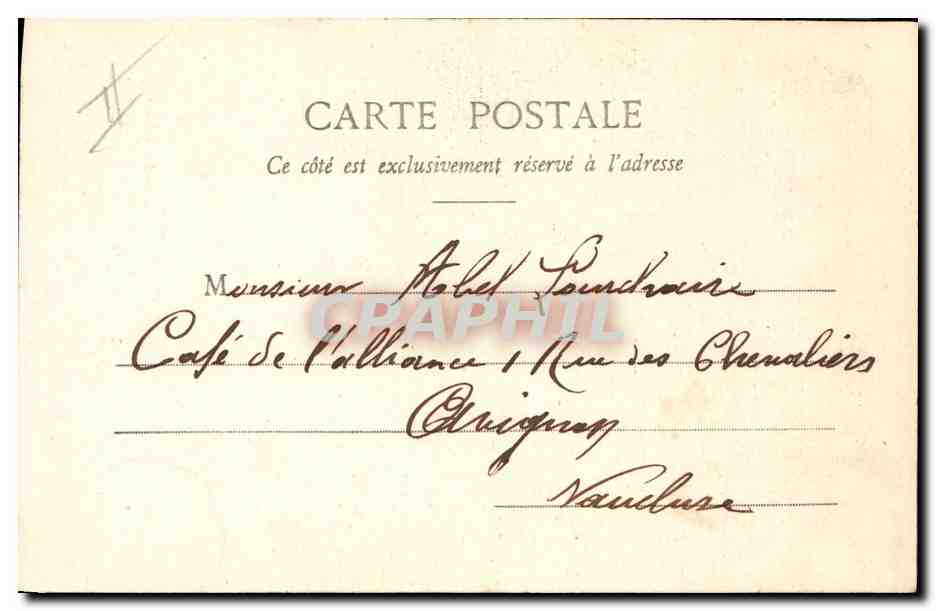 CARTE POSTALE
Ce côté est exclusivement réservé à l'adresse
Monsieur Abel
CPAPHIL
Café de l'alliance, Rue des Chevaliers
Avignon
Vaucluse